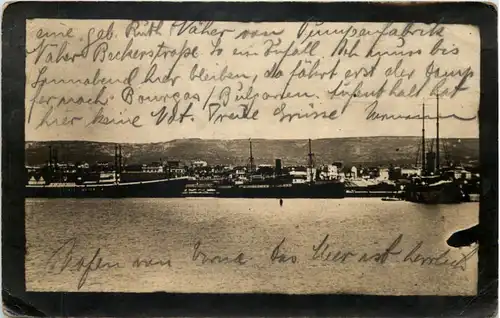 eine geb. Ruth Näher von Pumpenfabrik
Näher Beckerstraße So ein Zufall. Ich muss bis
Sonnabend hier bleiben, da fährt erst der Damp
fer nach Bourgas / Bulgarien. Aufenthalt hat
hier keine Viele Grüsse Hermann
Hafen von Varna Das Meer ist herrlich